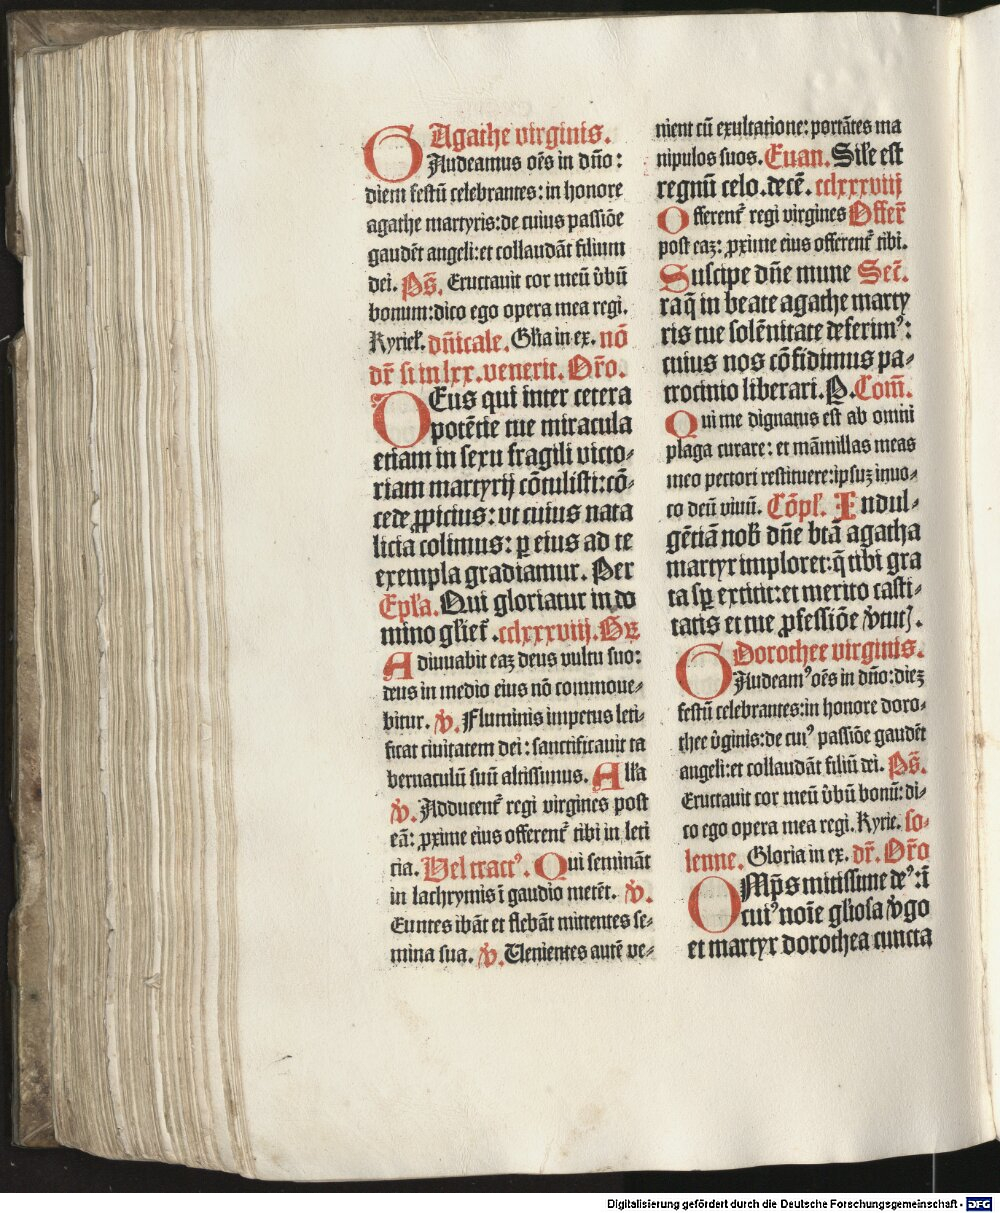 Agathe virginis.
GAudeamus oēs in dño:
diem festū celebrantes: in honore
agathe martyris: de cuius passiōe
gaudēt angeli: et collaudāt filium
dei. Ps̄. Eructauit cor meū v̓bū
bonum: dico ego opera mea regi.
Kyriel̓. dñicale. Gl̓ia in ex. nō
dr̄ si in lxx. venerit. Or̄o.
DEus qui inter cetera
potētie tue miracula
etiam in sexu fragili victo-
riam martyrij cōtulisti: cō-
cede ꝓpicius: vt cuius nata
licia colimus: ꝑ eius ad te
exempla gradiamur. Per
Ep̄l̓a. Qui gloriatur in do
mino gl̓iet̄. cclxxxviij. Gr̄
Adiuuabit eaꝫ deus vultu suo:
deus in medio eius nō commoue-
bitur. v̓. Fluminis impetus leti-
ficat ciuitatem dei: sanctificauit ta
bernaculū suū altissimus. All̓a
v̓. Adducent̄ regi virgines post
eā: ꝓxime eius offerent̄ tibi in leti
cia. Vel tractꝰ. Qui semināt
in lachrymis ī gaudio metēt. v̓.
Euntes ibāt et flebāt mittentes se-
mina sua. v̓. Uenientes autē ve-
nient cū exultatione: portātes ma
nipulos suos. Euan. Sil̓e est
regnū celo. decē. cclxxxviij
Offerent̄ regi virgines Offer̄
post eaꝫ: ꝓxime eius offerent̄ tibi.
Suscipe dñe mune Sec̄.
raq̄ in beate agathe marty
ris tue solēnitate deferimꝰ:
cuius nos cōfidimus pa-
trocinio liberari. P. Com̄.
Qui me dignatus est ab omni
plaga curare: et māmillas meas
meo pectori restituere: ipsuꝫ inuo-
co deū viuū. Cōpl̓. Indul-
gētiā nob̄ dñe btā agatha
martyr imploret: q̄ tibi gra
ta sꝑ extitit: et merito casti-
tatis et tue ꝓfessiōe v̓tutꝭ.
Dorothee virginis.
GAudeamꝰ oēs in dño: dieꝫ
festū celebrantes: in honore doro-
thee v̓ginis: de cuiꝰ passiōe gaudēt
angeli: et collaudāt filiū dei. Ps̄.
Eructauit cor meū v̓bū bonū: di-
co ego opera mea regi. Kyrie. so-
lenne. Gloria in ex. dr̄. Or̄o
OMp̄s mitissime deꝰ: ī
cuiꝰ noīe gl̓iosa v̓go
et martyr dorothea cuncta
Digitalisierung gefördert durch die Deutsche Forschungsgemeinschaft - DFG